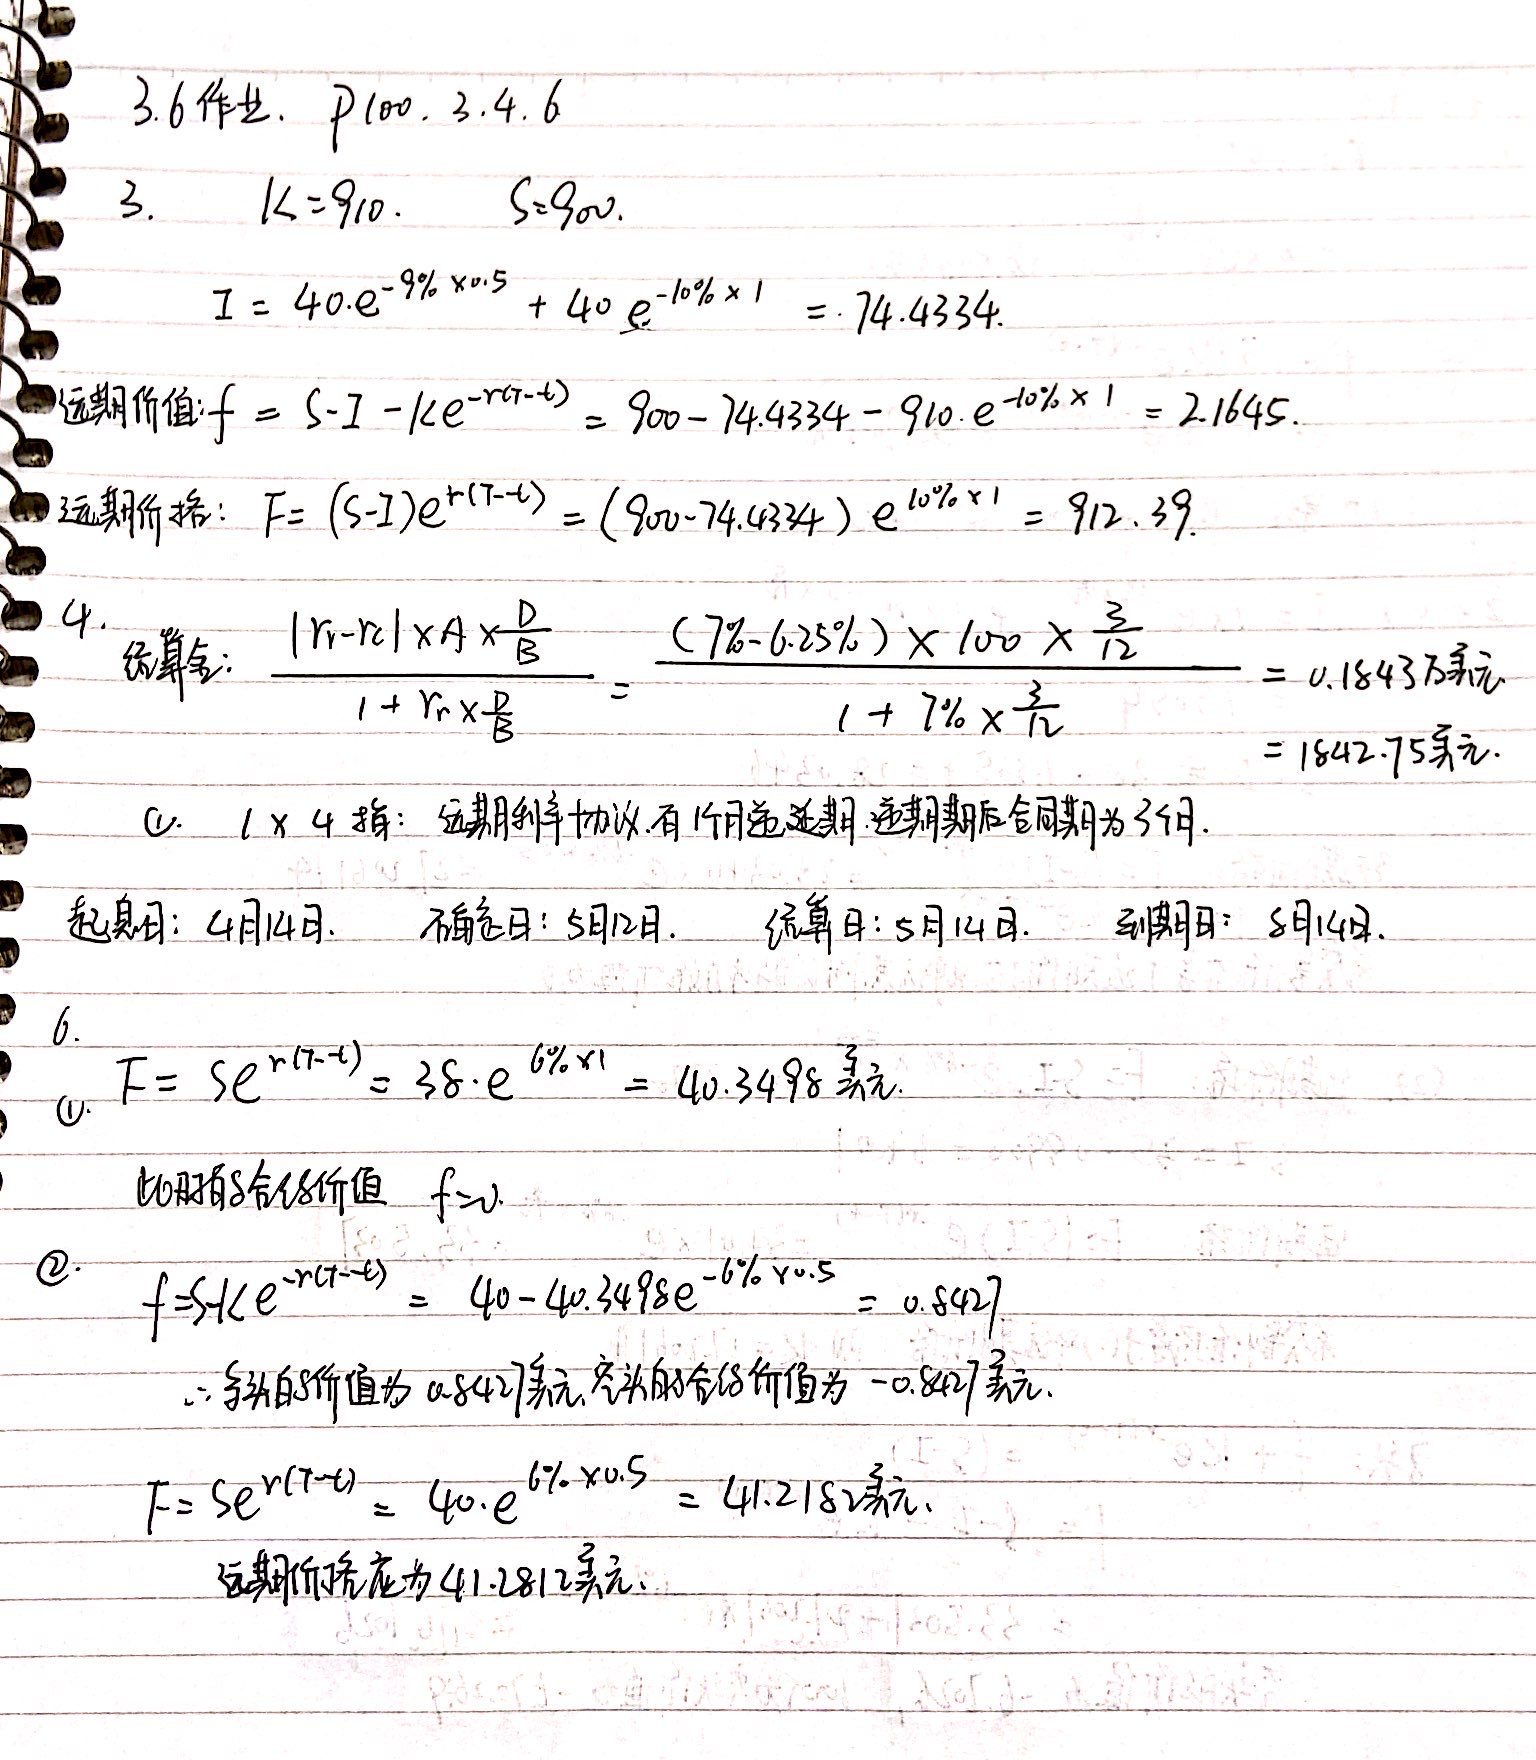 3.6作业. P100. 3.4.6
3. K=910. S=900.
I = 40·e^{-9%×0.5} + 40 e^{-10%×1} = 74.4334.
远期价值: f = S-I-Ke^{-r(T-t)} = 900-74.4334-910·e^{-10%×1} = 2.1645.
远期价格: F= (S-I)e^{r(T-t)} = (900-74.4334) e^{10%×1} = 912.39.
4. 结算金: \frac{|r_r-r_c|×A×\frac{D}{B}}{1+r_r×\frac{D}{B}} = \frac{(7%-6.25%)×100×\frac{3}{12}}{1+7%×\frac{3}{12}} = 0.1843万美元
= 1842.75美元.
①. 1×4指: 远期利率协议.有1个月递延期.递期期后合同期为3个月.
起息日: 4月14日. 确定日: 5月12日. 结算日: 5月14日. 到期日: 8月14日.
6.
①. F= Se^{r(T-t)} = 38·e^{6%×1} = 40.3498美元.
此时的合约价值 f=0.
②. f=S-Ke^{-r(T-t)} = 40-40.3498e^{-6%×0.5} = 0.8427
∴多头的价值为0.8427美元.空头的合约价值为-0.8427美元.
F= Se^{r(T-t)} = 40·e^{6%×0.5} = 41.2182美元.
远期价格应为41.2812美元.